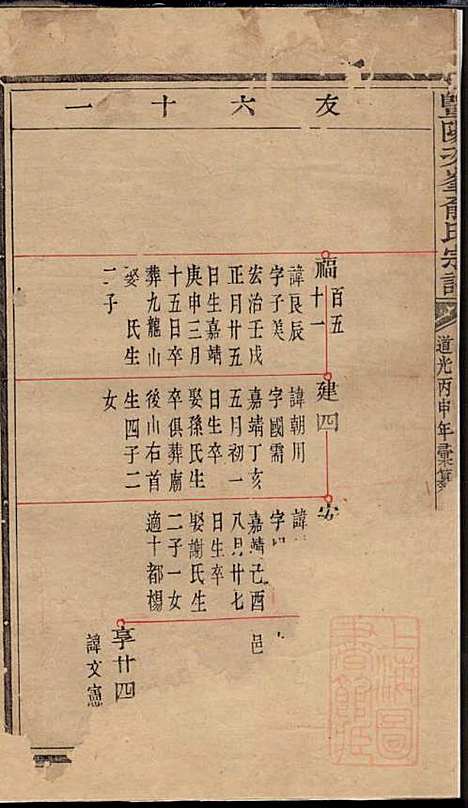 暨陽次峯俞氏宗譜
道光丙申年彙纂
友六十一
福百五十一
諱良辰
字子美
宏治壬戌
正月廿五
日生嘉靖
庚申三月
十五日卒
葬九龍山
娶 氏生
二子
建四
諱朝川
字國需
嘉靖丁亥
五月初一
日生 卒
娶孫氏生
卒俱葬廟
後山右首
生四子二
女
安
諱
字
嘉靖己酉
八月廿七
日生 卒
娶謝氏生
二子一女
適十都楊
邑
享廿四
諱文憲
上海圖書館藏